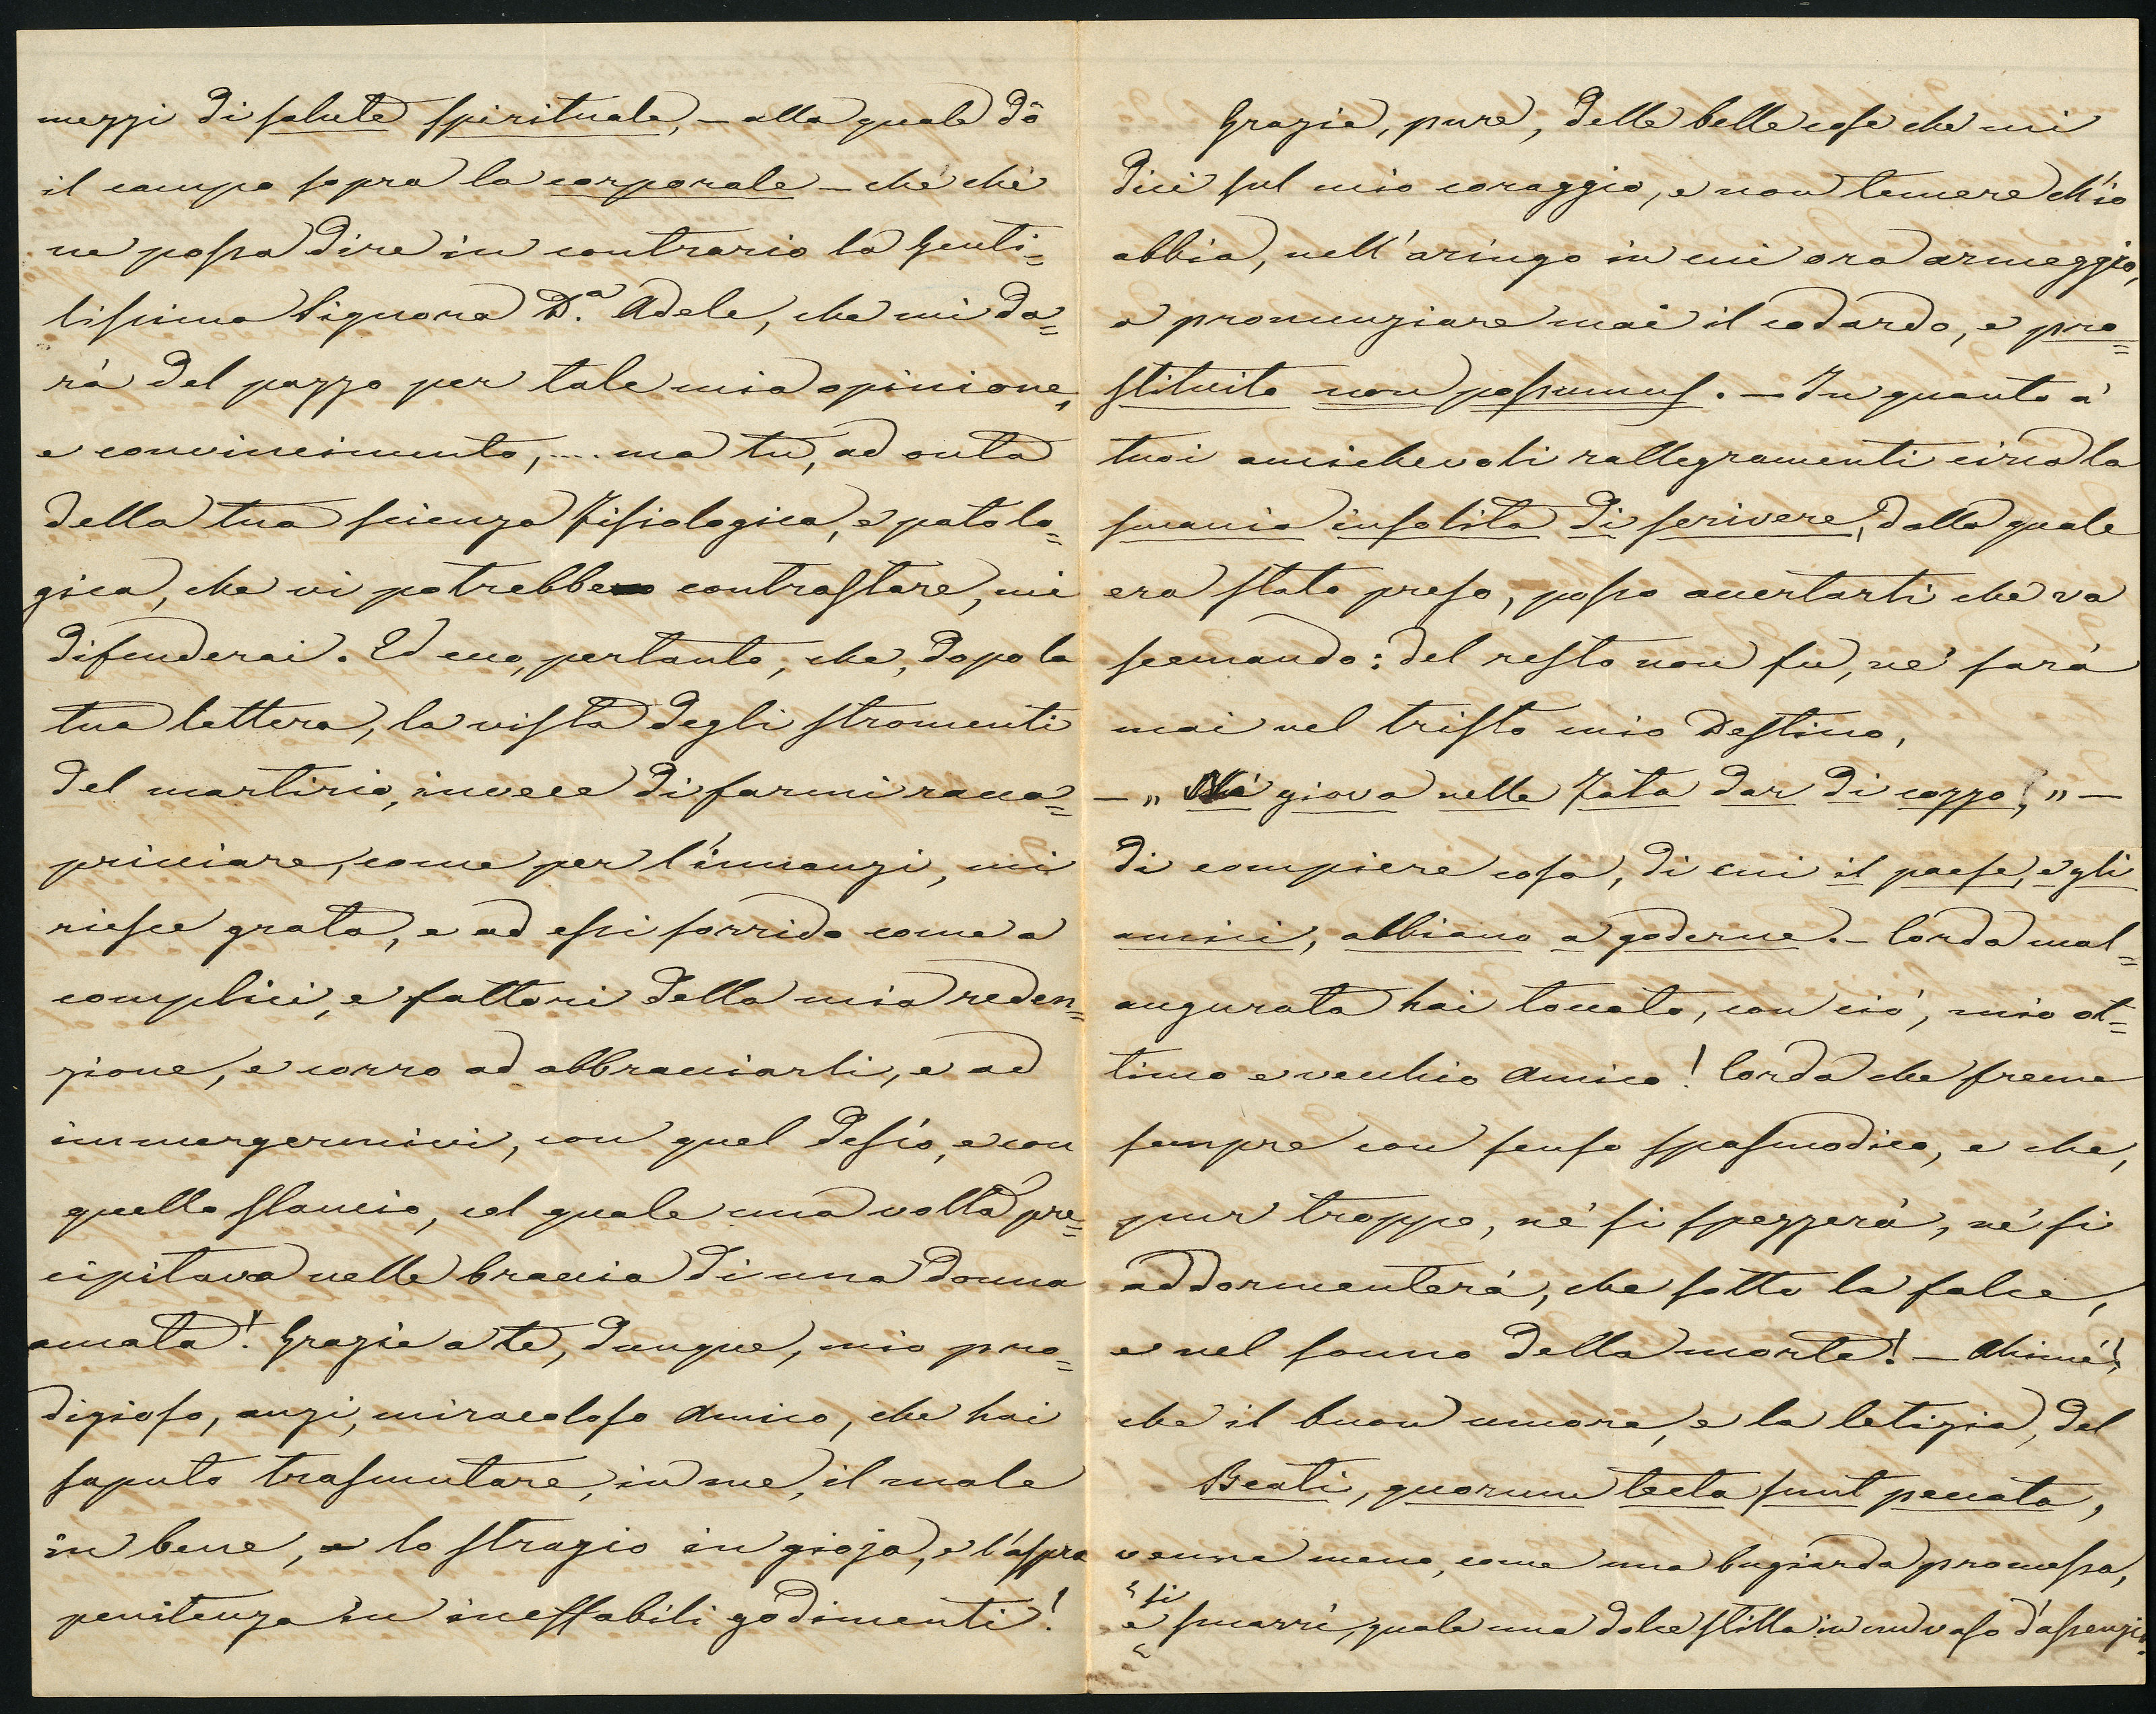 mezzi di salute spirituale, – alla quale dò
il campo sopra la corporale – chè chè
ne possa dire in contrario la Genti=
lissima Signora D.ª Adele, che mi da=
rà del pazzo per tale mia opinione,
e convincimento, .... ma tu, ad onta
della tua scienza Fisiologica, e patolo=
gica, che vi potrebbero contrastare, mi
difenderai. Ed ecco, pertanto, che, dopo la
tua lettera, la vista degli stromenti
del martirio, invece di farmi racca=
pricciare, come per l'innanzi, mi
riesce grata, e ad essi sorrido come a
complici, e fattori della mia reden=
zione, e corro ad abbracciarli, e ad
immergermivi, con quel desío, e con
quello slancio, col quale una volta pre=
cipitava nelle braccia di una donna
amata! Grazie a te, dunque, mio pro=
digioso, anzi, miracoloso Amico, che hai
saputo trasmutare, in me, il male
in bene, lo strazio in gioja, e l'aspra
penitenza in ineffabili godimenti!
Grazie, pure, delle belle cose che mi
dici sul mio coraggio, e non temere ch'io
abbia, nell'aringo in cui ora armeggio,
a pronunziare mai il codardo, e pro=
stituito non possumus. – In quanto a'
tuoi amichevoli rallegramenti circa la
smania insolita di scrivere, dalla quale
era stato preso, posso accertarti che va
scemando: del resto non fu, nè sarà
mai nel tristo mio Destino,
– „ Nè giova nelle Fata dar di cozzo!, „ –
di compiere cosa, di cui il paese, e gli
amici, abbiano a goderne. – Corda mal=
augurata hai toccata, con ciò, mio ot=
timo e vecchio Amico! Corda che freme
sempre con senso spasmodico, e che,
pur troppo, nè si spezzerà, nè si
addormenterà, che sotto la falce,
e nel sonno della morte! – Ahimè!,
che il buon umore, e la letizia, del
Beati, quorum tecta sunt peccata,
venne meno, come una bugiarda promessa,
e si smarrì, quale una dolce stilla in un vaso d'assenzio.